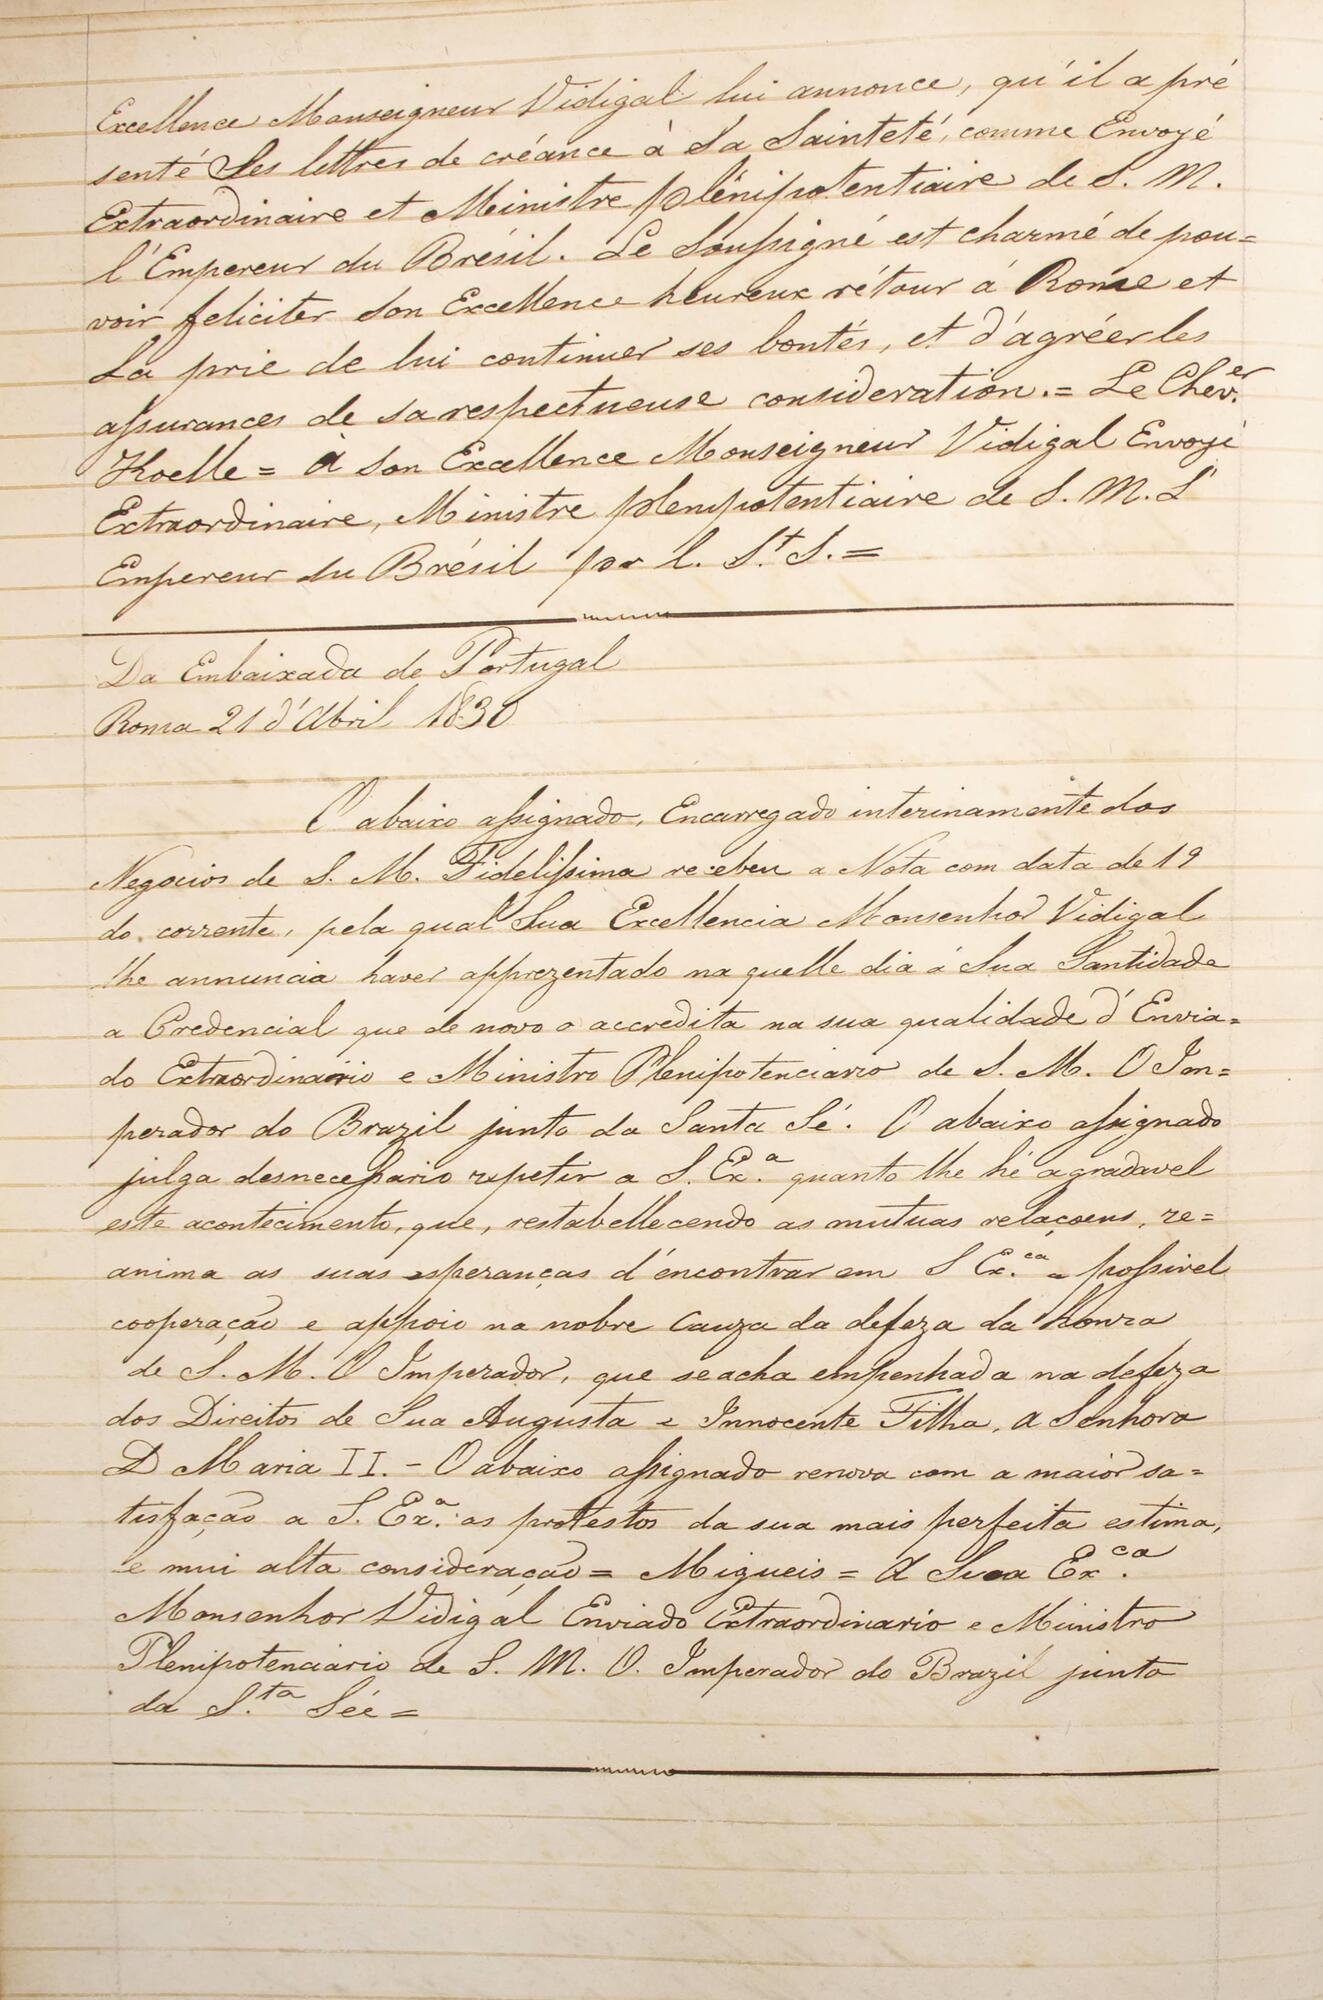 Excellence Monseigneur Vidigal lui annonce, qu'il a pré
senté Ses lettres de créance à Sa Sainteté, comme Envoyé
Extraordinaire et Ministre plénipotentiaire de S. M.
l'Empereur du Brésil. Le Soussigné est charmé de pou=
voir feliciter Son Excellence heureux rétour à Rome et
La prie de lui continuer ses bontés, et d'agréer les
assurances de sa respectueuse consideration. = Le Chev.er
Koelle = A Son Excellence Monseigneur Vidigal Envoyé
Extraordinaire, Ministre plenipotentiaire de S. M. L'
Empereur du Brésil por l. S.t S. =
Da Embaixada de Portugal
Roma 21 d'Abril 1830
O abaixo assignado, Encarregado interinamente dos
Negocios de S. M. Fidelissima recebeu a Nota com data de 19
do corrente, pela qual Sua Excellencia Monsenhor Vidigal
lhe annuncia haver apprezentado na quelle dia á Sua Santidade
a Credencial que de novo o accredita na sua qualidade d'Envia=
do Extraordinario e Ministro Plenipotenciario de S. M. O Im=
perador do Brazil junto da Santa Sé. O abaixo assignado
julga desnecessario repetir a S. Ex.a quanto lhe hé agradavel
este acontecimento, que, restabellecendo as mutuas relaçoens, re=
anima as suas esperanças d'encontrar em S Ex.ca a possivel
cooperação e appoio na nobre Cauza da defeza da Honra
de S. M. O Imperador, que se acha empenhada na defeza
dos Direitos de Sua Augusta e Innocente Filha, a Senhora
D Maria II. - O abaixo assignado renova com a maior sa=
tisfação a S. Ex.a os protestos da sua mais perfeita estima,
e mui alta consideração = Migueis = A Sua Ex.ca
Monsenhor Vidigal Enviado Extraordinario e Ministro
Plenipotenciario de S. M. O. Imperador do Brazil junto
da S.ta Séé =